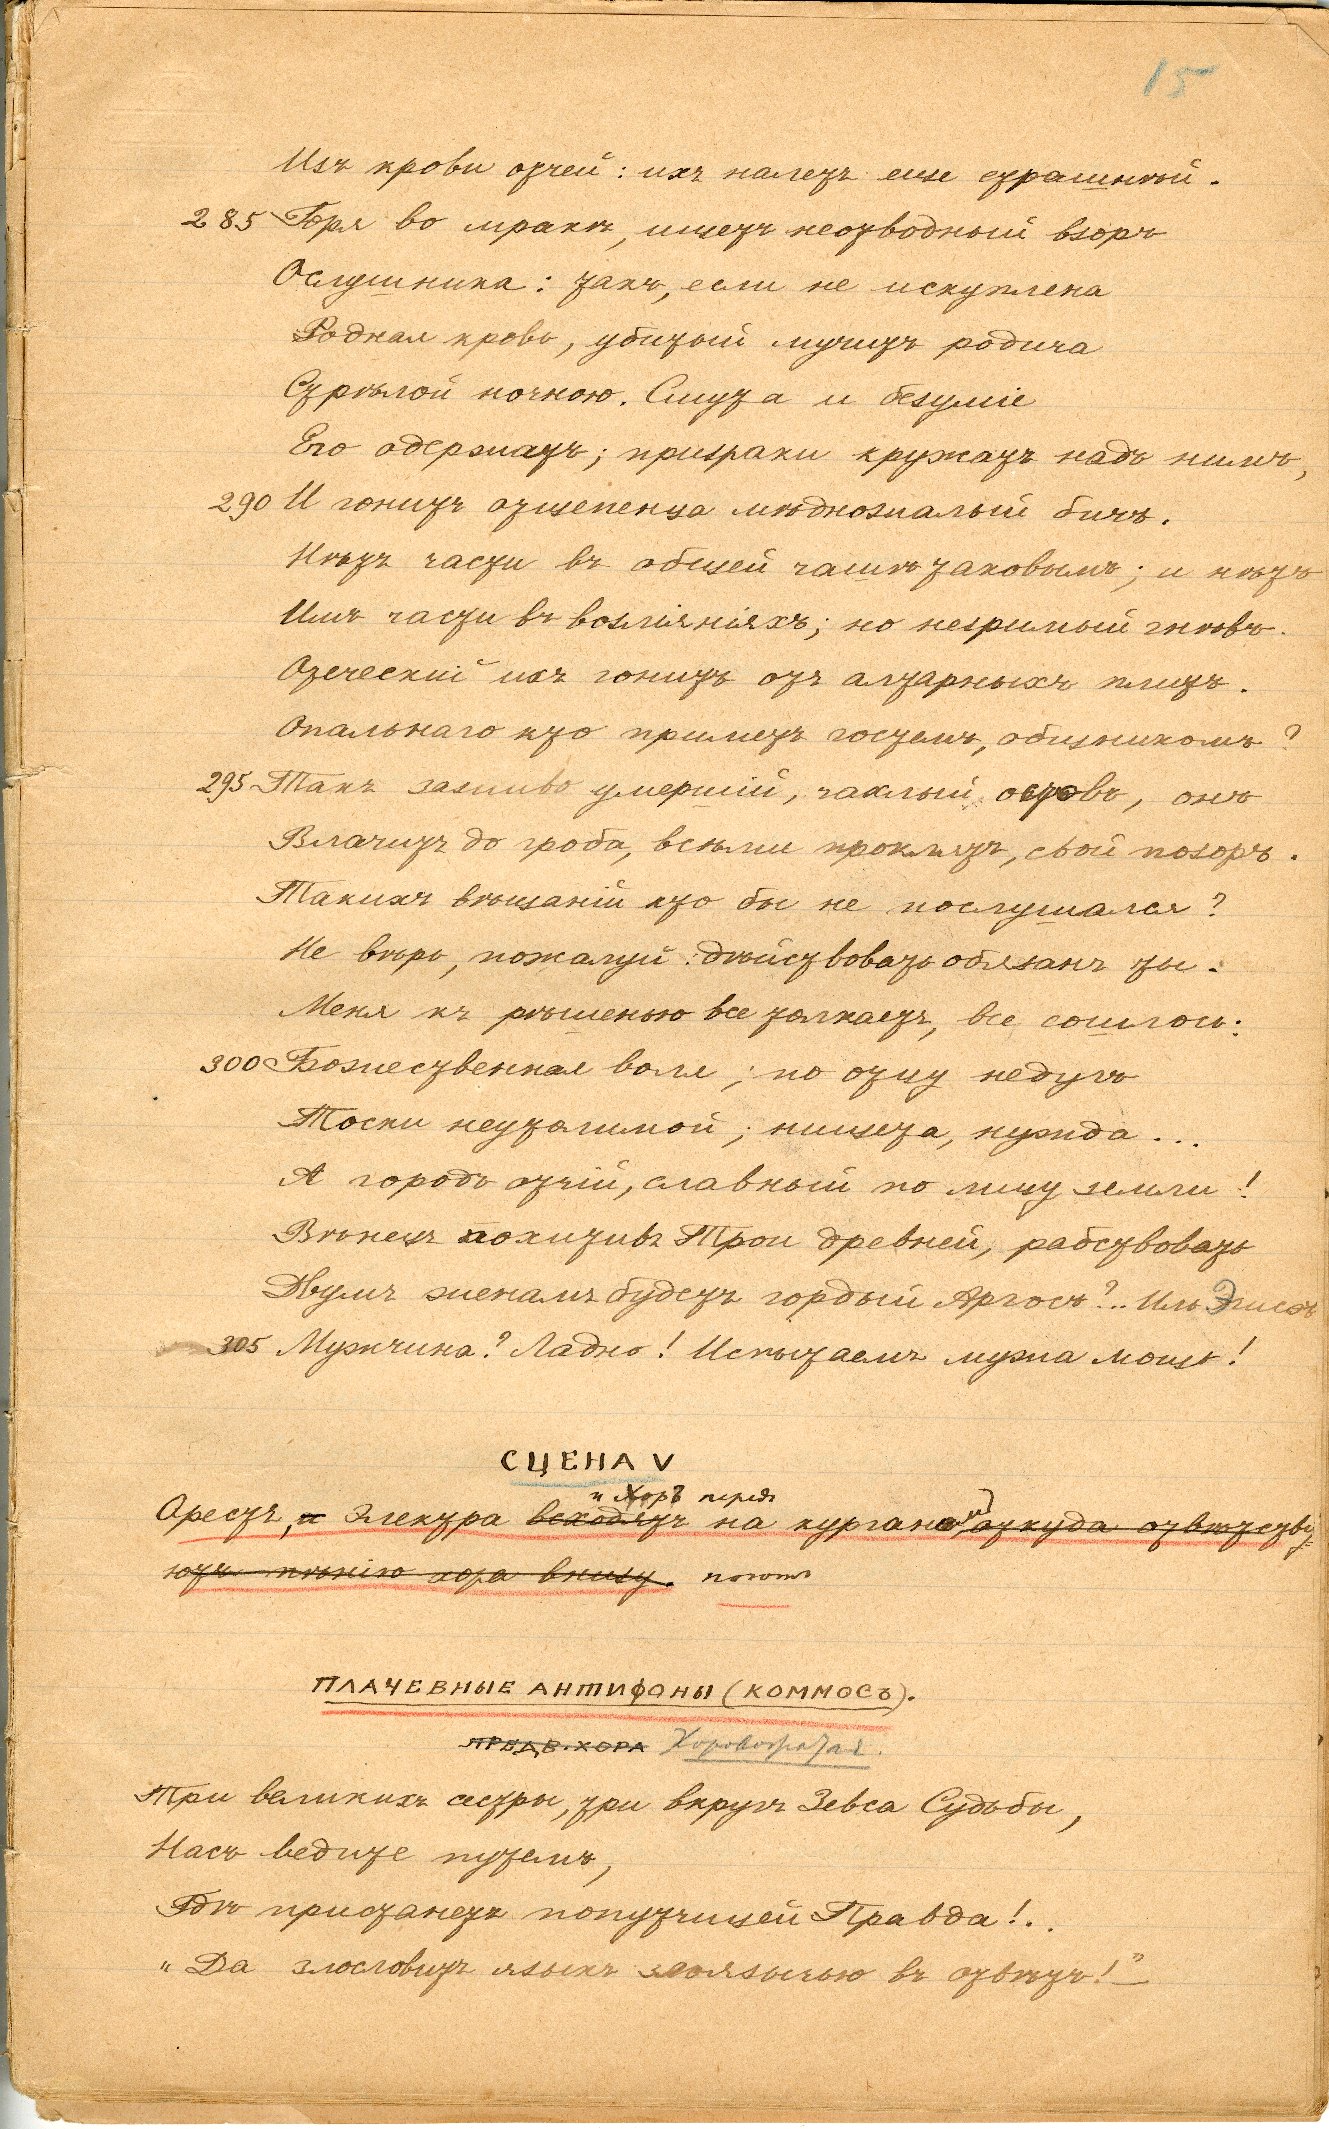 15
Изъ крови отчей: ихъ налетъ еще страшнѣй.
285 Горя во мракѣ, ищетъ неотводный взоръ
Ослушника: такъ, если не искуплена
Родная кровь, убитый мучитъ родича
Стрѣлой ночною. Смута и безуміе
Его одержатъ; призраки кружатъ надъ нимъ,
290 И гонитъ отщепенца мѣдножалый бичъ.
Нѣтъ части въ общей чашѣ таковымъ; и нѣтъ
Имъ части въ возліяніяхъ; но незримый гнѣвъ
Отеческій ихъ гонитъ отъ алтарныхъ плитъ.
Опальнаго кто приметъ гостемъ, общникомъ?
295 Такъ заживо умершій, чахлый остовъ, онъ
Влачитъ до гроба, всѣми проклятъ, свой позоръ.
Такихъ вѣщаній кто бы не послушался?
Не вѣрь, пожалуй: дѣйствовать обязанъ ты.
Меня къ рѣшенью все толкаетъ, все сошлось:
300 Божественная воля; по отцу недугъ
Тоски неутолимой; нищета, нужда...
А городъ отчій, славный по лицу земли!
Вѣнецъ похитивъ Трои древней, рабствовать
Двумъ женамъ будетъ гордый Аргосъ?.. Иль Эгисѳъ
305 Мужчина? Ладно! Испытаемъ мужа мощь!
СЦЕНА V
и Хоръ передъ
Орестъ, и Электра всходятъ на курганъ, откуда отвѣтству-
ютъ пѣнію хора внизу. поютъ
ПЛАЧЕВНЫЕ АНТИФОНЫ (КОММОСЪ).
ПРЕДВ. ХОРА Хоровожатая.
Три великихъ сестры, три вкругъ Зевса Судьбы,
Насъ ведите путемъ,
Гдѣ пристанетъ попутчицей Правда!..
„Да злословитъ языкъ злоязычью въ отвѣтъ!" —